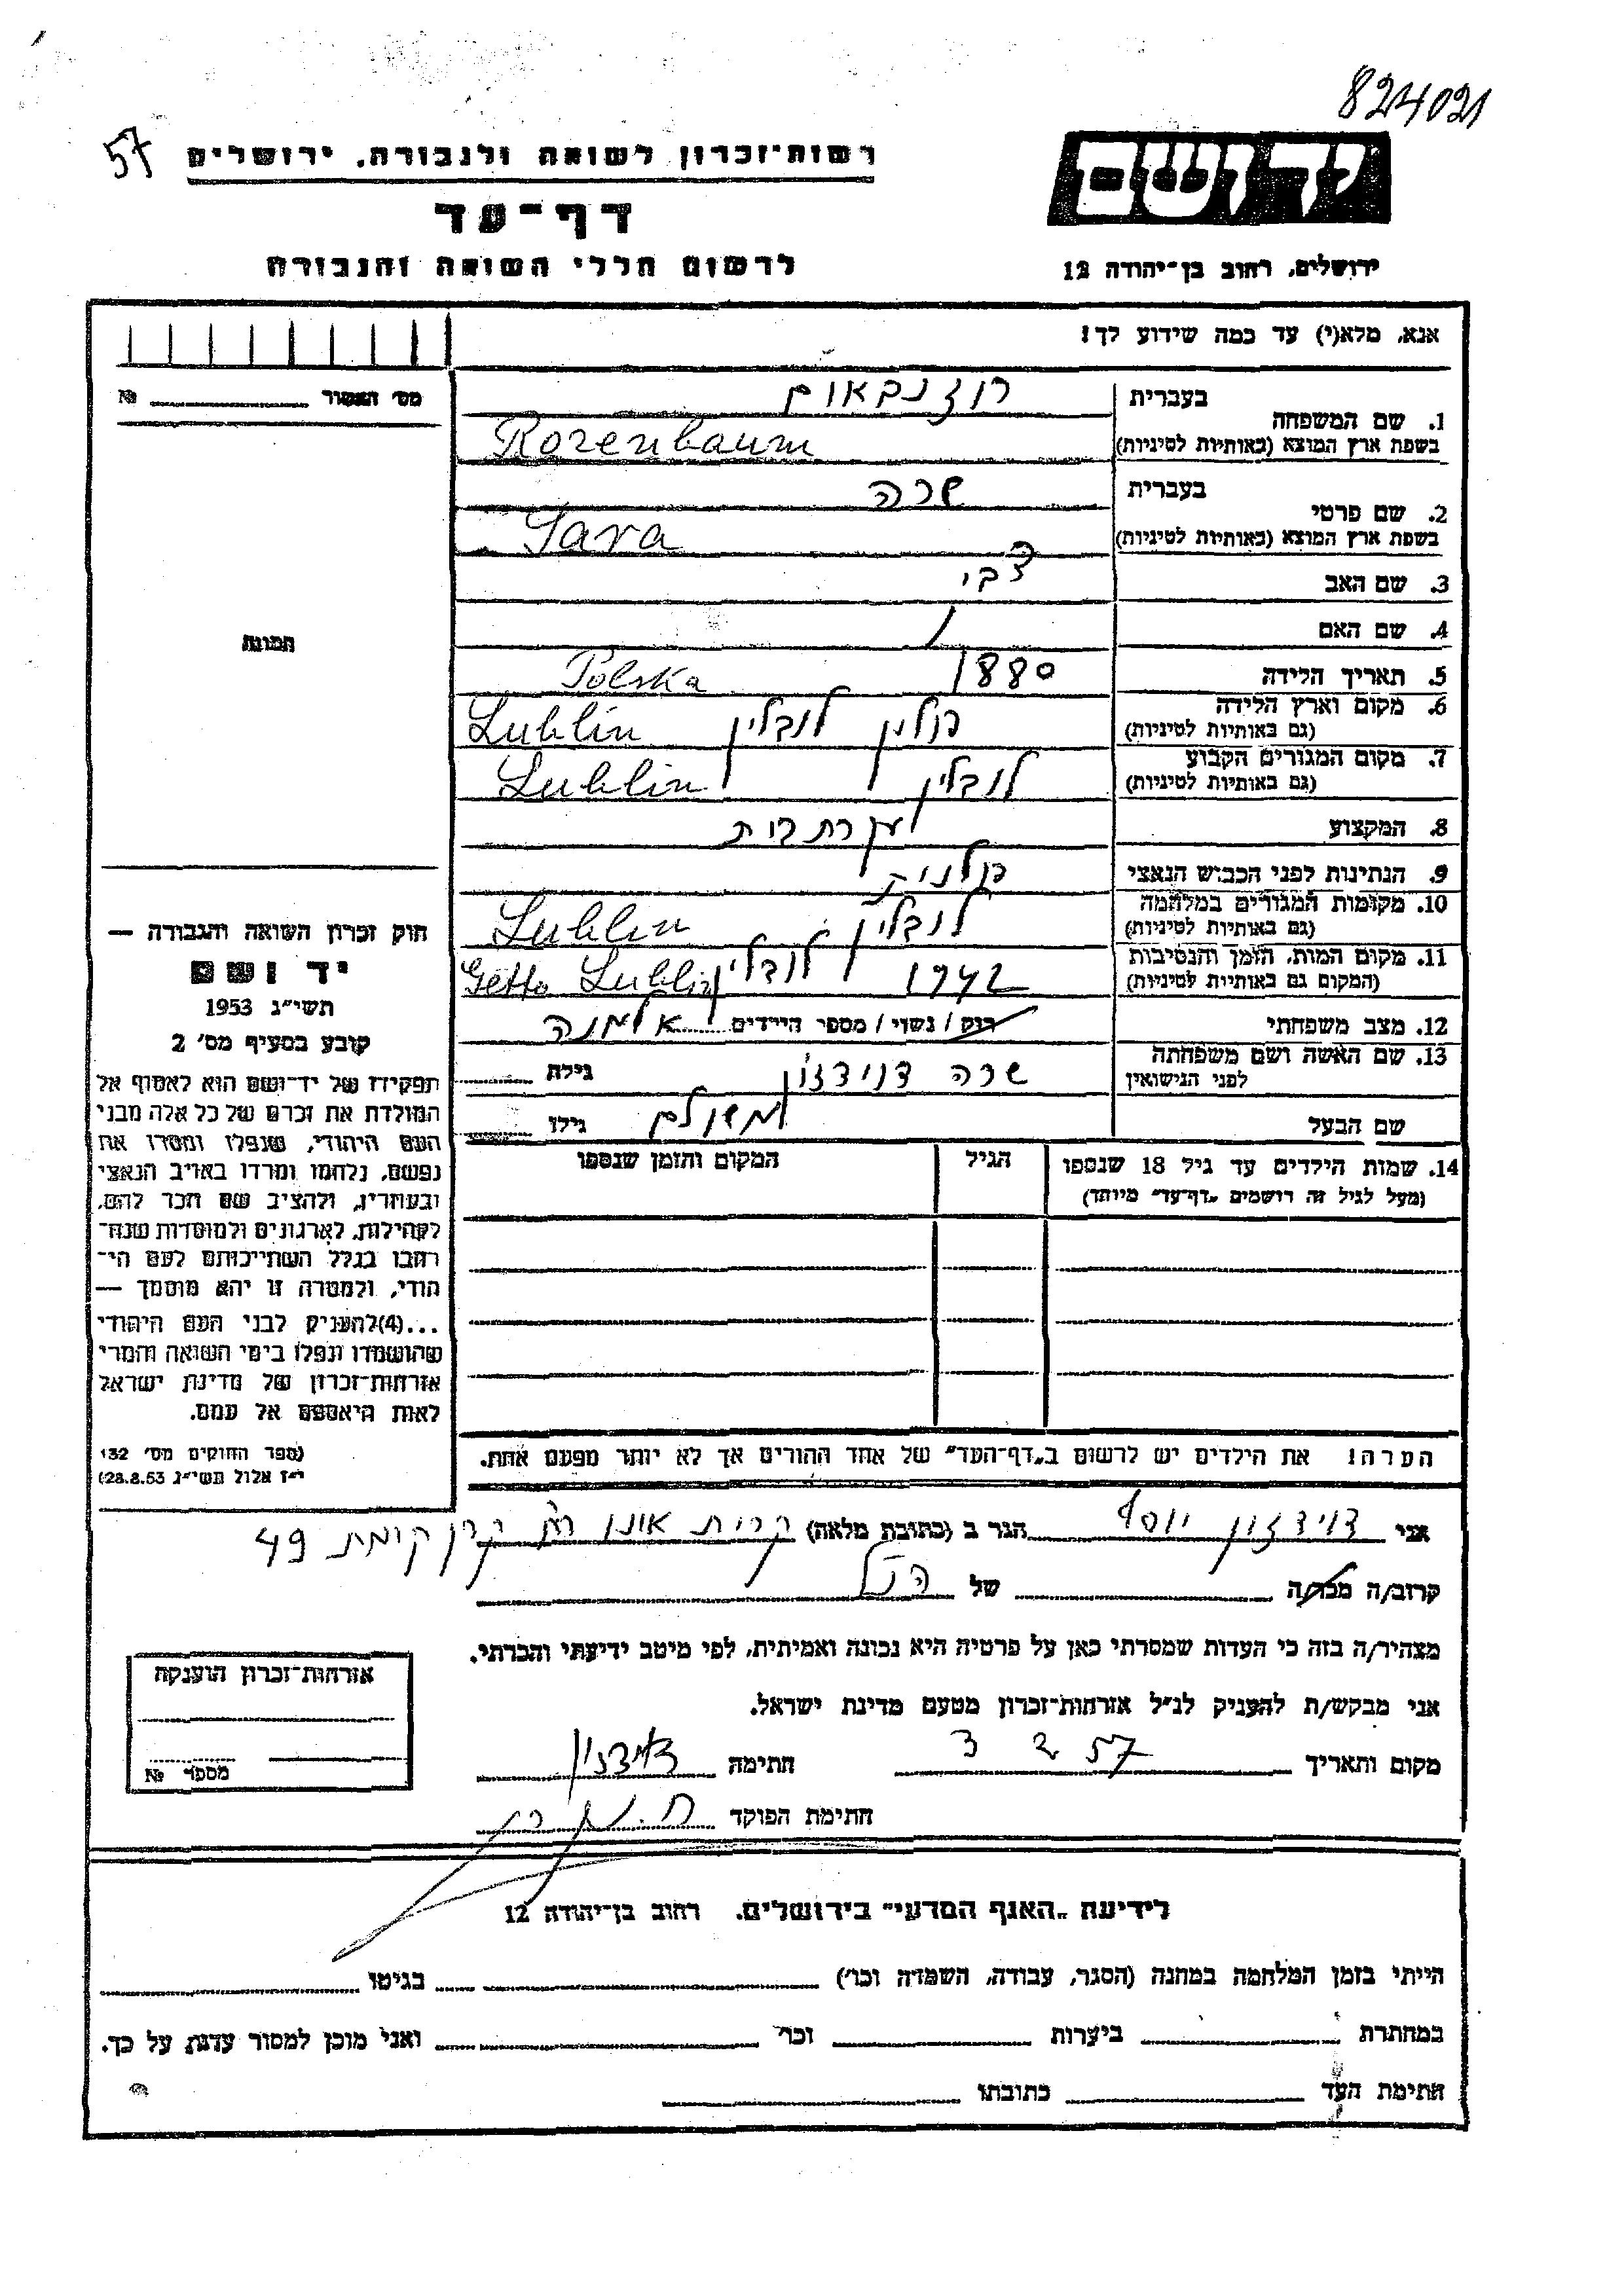 824021
57
רשות־זכרון לשואה ולגבורה, ירושלים
יד ושם
דף־עד
לרשום חללי השואה והגבורה
ירושלים, רחוב בן־יהודה 12
אנא, מלא(י) עד כמה שידוע לך!
מס׳ האשור № 
1. שם המשפחה
בעברית רוזנבאום
בשפת ארץ המוצא (באותיות לטיניות) Rozenbaum
2. שם פרטי
בעברית שרה
בשפת ארץ המוצא (באותיות לטיניות) Sara
3. שם האב צבי
4. שם האם /
5. תאריך הלידה 1880
6. מקום וארץ הלידה (גם באותיות לטיניות) פולין לובלין Lublin Polska
7. מקום המגורים הקבוע (גם באותיות לטיניות) לובלין Lublin
8. המקצוע עקרת בית
9. הנתינות לפני הכבוש הנאצי פולנית
10. מקומות המגורים במלחמה (גם באותיות לטיניות) לובלין Lublin
11. מקום המות, הזמן והנסיבות (המקום גם באותיות לטיניות) 1942 לובלין Getto Lublin
12. מצב משפחתי רוק / נשוי / מספר הילדים אלמנה
13. שם האשה ושם משפחתה לפני הנישואין שרה דוידזון גילה
שם הבעל משולם גילו
תמונה
14. שמות הילדים עד גיל 18 שנספו
(מעל לגיל זה רושמים „דף־עד" מיוחד)
הגיל
המקום והזמן שנספו
חוק זכרון השואה והגבורה —
יד ושם
תשי״ג 1953
קובע בסעיף מס׳ 2
תפקידו של יד־ושם הוא לאסוף אל
המולדת את זכרם של כל אלה מבני
העם היהודי, שנפלו ומסרו את
נפשם, נלחמו ומרדו באויב הנאצי
ובעוזריו, ולהציב שם וזכר להם,
לקהילות, לארגונים ולמוסדות שנח־
רבו בגלל השתייכותם לעם הי־
הודי, ולמטרה זו יהא מוסמך —
...(4) להעניק לבני העם היהודי
שהושמדו ונפלו בימי השואה והמרי
אזרחות־זכרון של מדינת ישראל
לאות היאספם אל עמם.
(ספר החוקים מס׳ 132
י״ז אלול תשי״ג 28.8.53)
הערה! את הילדים יש לרשום ב„דף־העד" של אחד ההורים אך לא יותר מפעם אחת.
אני דוידזון יוסף הגר ב (כתובת מלאה) קרית אונו רח׳ קרן קימת 49
קרוב/ה מכר/ה של הנ״ל
מצהיר/ה בזה כי העדות שמסרתי כאן על פרטיה היא נכונה ואמיתית, לפי מיטב ידיעתי והכרתי.
אני מבקש/ת להעניק לנ״ל אזרחות־זכרון מטעם מדינת ישראל.
מקום ותאריך 3 2 57 חתימה דוידזון
חתימת הפוקד
אזרחות־זכרון הוענקה
מספר №
לידיעת „האגף המדעי" בירושלים, רחוב בן־יהודה 12
הייתי בזמן המלחמה במחנה (הסגר, עבודה, השמדה וכו׳) בגיטו
במחתרת ביערות וכו׳ ואני מוכן למסור עדות על כך.
חתימת העד כתובתו